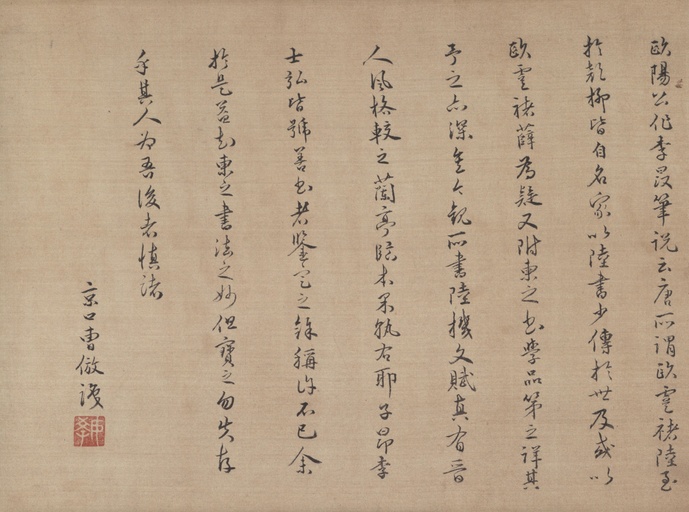 歐陽公作李晸筆說云唐所謂歐虞褚陸至
於顏柳皆自名家以陸書少傳於世及或以
歐虞褚薛為疑又附東之書學品第之詳其
予之亦深矣今觀所書陸機文賦真有晉
人風格較之蘭亭臨本果孰右耶子昂李
士弘皆號善書者鑒定之餘稱許不已余
於是益知東之書法之妙但寶之勿失存
乎其人为吾後者慎諸
京口曹倣識